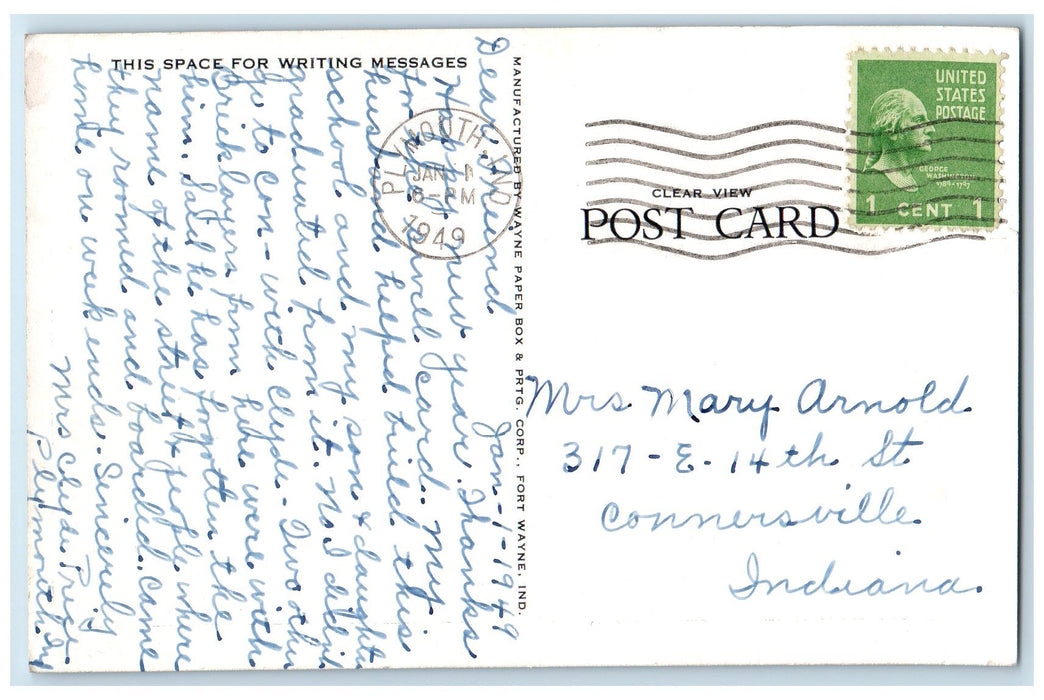 THIS SPACE FOR WRITING MESSAGES
Dear Friend Jan-1-1949
Happy new year. Thanks
for lovely card. My
husband helped build this
school and my son & daughter
graduated from it. No I didn't
go to Con- with Clyde- Two other
Bricklayers from here were with
him. Said he has forgotten the
name of the street & people where
they roomed and boarded. Came
home on week ends. Sincerely
Mrs Clyde Price
Plymouth Ind
PLYMOUTH, IND
JAN 1
6-PM
1949
MANUFACTURED BY WAYNE PAPER BOX & PRTG. CORP., FORT WAYNE, IND.
UNITED
STATES
POSTAGE
GEORGE
WASHINGTON
1789-1797
1 CENT 1
CLEAR VIEW
POST CARD
Mrs Mary Arnold
317-E-14th St
Connersville
Indiana.